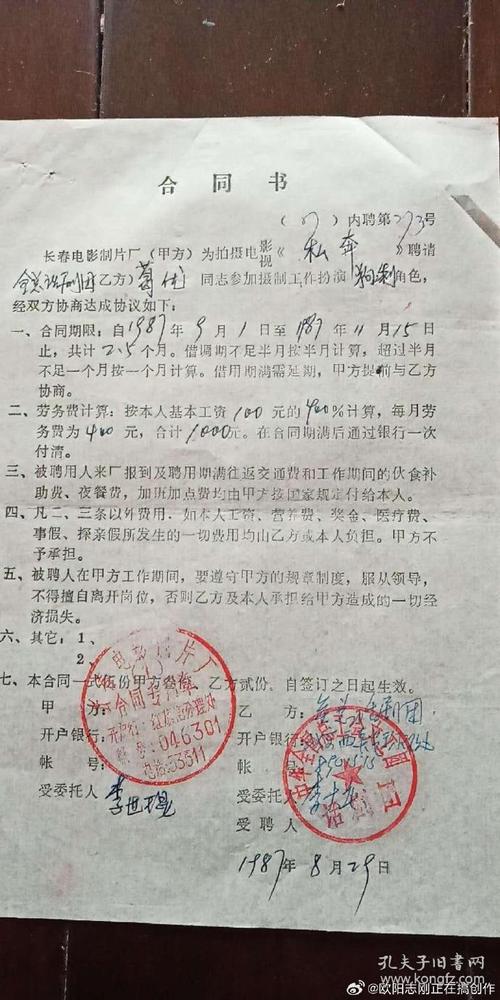 合同书
(87)内聘第273号
长春电影制片厂(甲方)为拍摄电影视《私奔》聘请
全总话剧团(乙方)葛优同志参加摄制工作扮演狗剩角色,
经双方协商达成协议如下:
一、合同期限:自1987年9月1日至1987年11月15日
止,共计2.5个月。借调期不足半月按半月计算,超过半月
不足一个月按一个月计算。借用期满需延期,甲方提前与乙方
协商。
二、劳务费计算:按本人基本工资100元的400%计算,每月劳
务费为400元,合计1000元。在合同期满后通过银行一次
付清。
三、被聘用人来厂报到及聘用期满往返交通费和工作期间的伙食补
助费、夜餐费,加班加点费均由甲方按国家规定付给本人。
四、凡二、三条以外费用,如本人工资、营养费、奖金、医疗费、
事假、探亲假所发生的一切费用均由乙方或本人负担。甲方不
予承担。
五、被聘人在甲方工作期间,要遵守甲方的规章制度,服从领导,
不得擅自离开岗位,否则乙方及本人承担给甲方造成的一切经
济损失。
六、其它:1、
2、
七、本合同一式伍份甲方叁份,乙方贰份,自签订之日起生效。
甲方:
开户银行:
帐号:
受委托人 李世
电影制片厂
合同专用章
046301
电话:53311
乙方:全总话剧团
开户银行:
帐号:
受委托人
受聘人
话剧团
1987年8月29日
孔夫子旧书网
@欧阳志刚正在搞创作